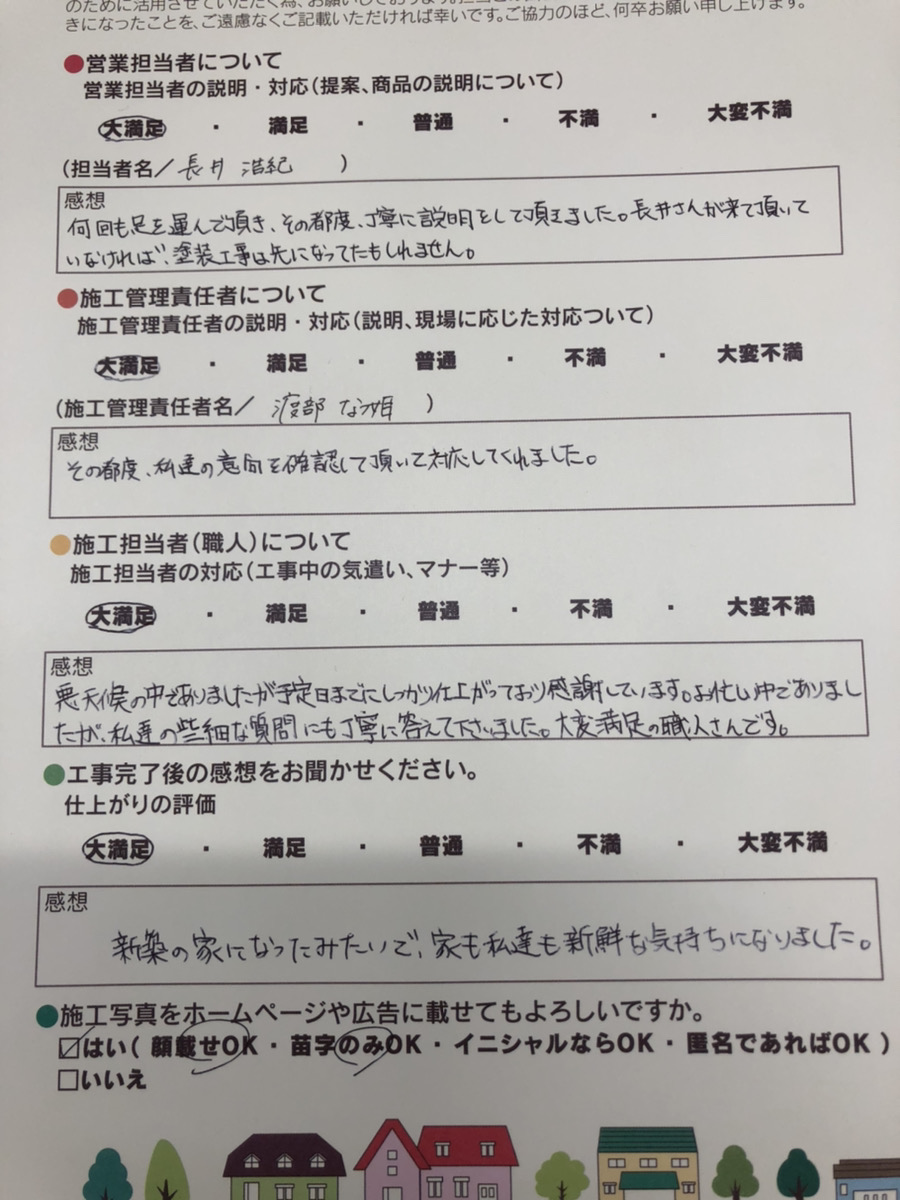 のために活用させていただく為、お願いしております。
きになったことを、ご遠慮なくご記載いただければ幸いです。ご協力のほど、何卒お願い申し上げます。
●営業担当者について
営業担当者の説明・対応(提案、商品の説明について)
大満足 ・ 満足 ・ 普通 ・ 不満 ・ 大変不満
(担当者名/長井 浩紀 )
感想
何回も足を運んで頂き、その都度、丁寧に説明をして頂きました。長井さんが来て頂いて
いなければ、塗装工事は先になってたもしれません。
●施工管理責任者について
施工管理責任者の説明・対応(説明、現場に応じた対応ついて)
大満足 ・ 満足 ・ 普通 ・ 不満 ・ 大変不満
(施工管理責任者名/ 渡部 )
感想
その都度、私達の意向を確認して頂いて対応してくれました。
●施工担当者(職人)について
施工担当者の対応(工事中の気遣い、マナー等)
大満足 ・ 満足 ・ 普通 ・ 不満 ・ 大変不満
感想
悪天候の中でありましたが予定日までにしっかり仕上がっており感謝しています。お忙しい中でありまし
たが、私達の些細な質問にも丁寧に答えて下さいました。大変満足の職人さんです。
●工事完了後の感想をお聞かせください。
仕上がりの評価
大満足 ・ 満足 ・ 普通 ・ 不満 ・ 大変不満
感想
新築の家になったみたいで、家も私達も新鮮な気持ちになりました。
●施工写真をホームページや広告に載せてもよろしいですか。
☑はい( 顔載せOK ・ 苗字のみOK ・ イニシャルならOK ・ 匿名であればOK )
□いいえ